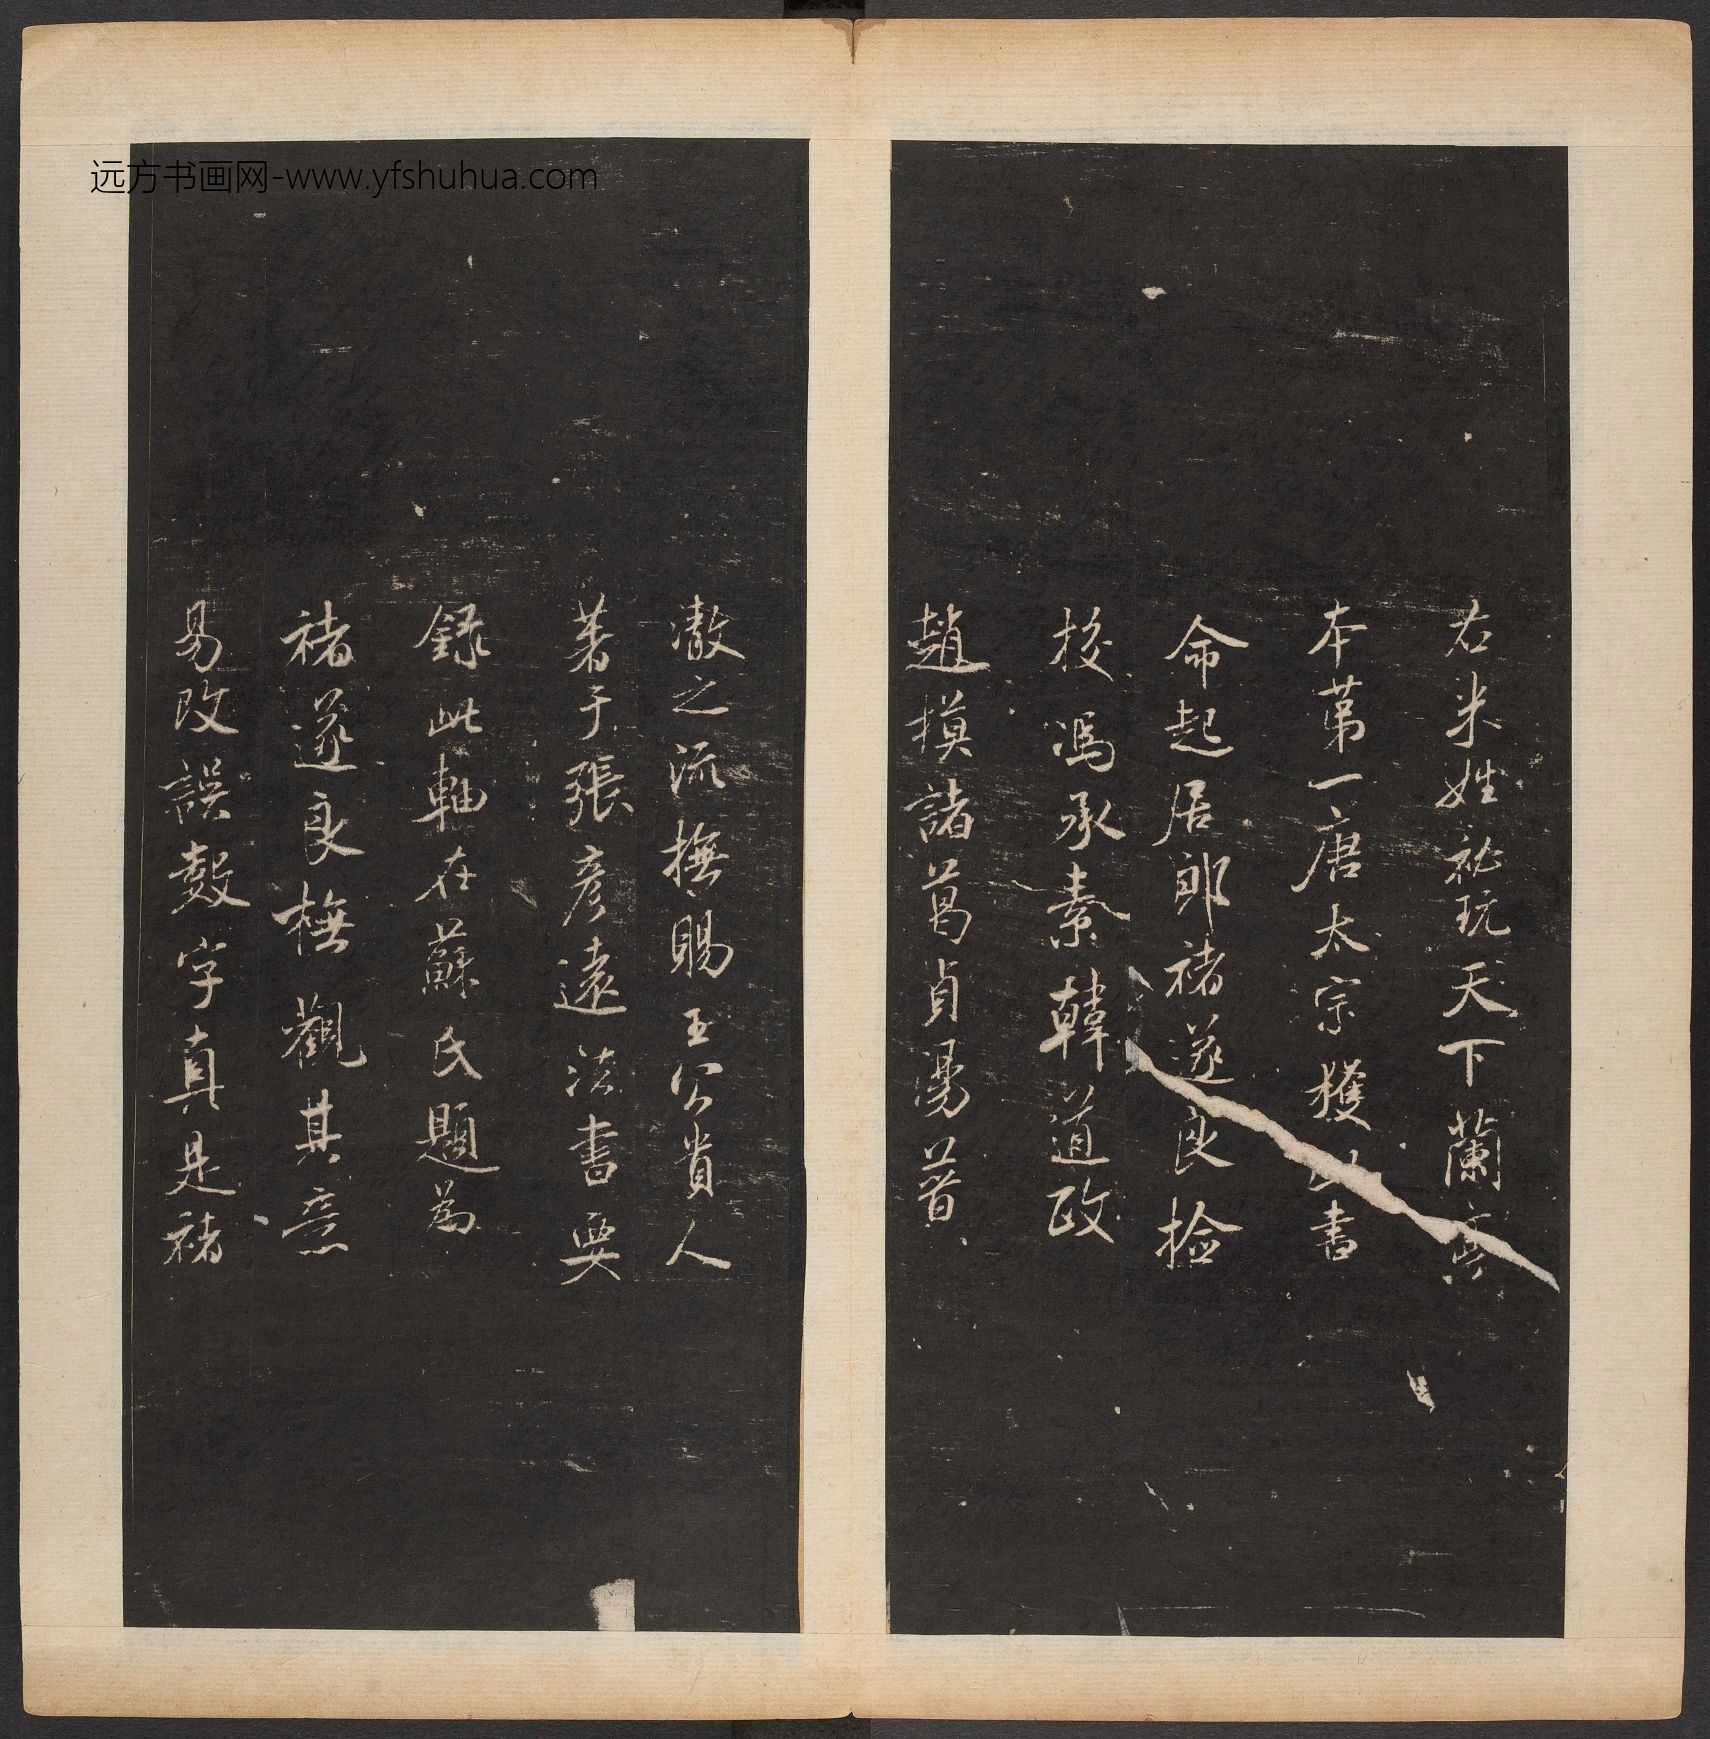 远方书画网-www.yfshuhua.com
右米姓祕玩天下蘭亭
本第一唐太宗獲此書
命起居郎褚遂良撿
挍馮承素韓道政
趙摸諸葛貞湯普
澈之流撫賜王公貴人
著于張彥遠法書要
錄此軸在蘇氏題為
褚遂良撫觀其意
易改誤數字真是褚